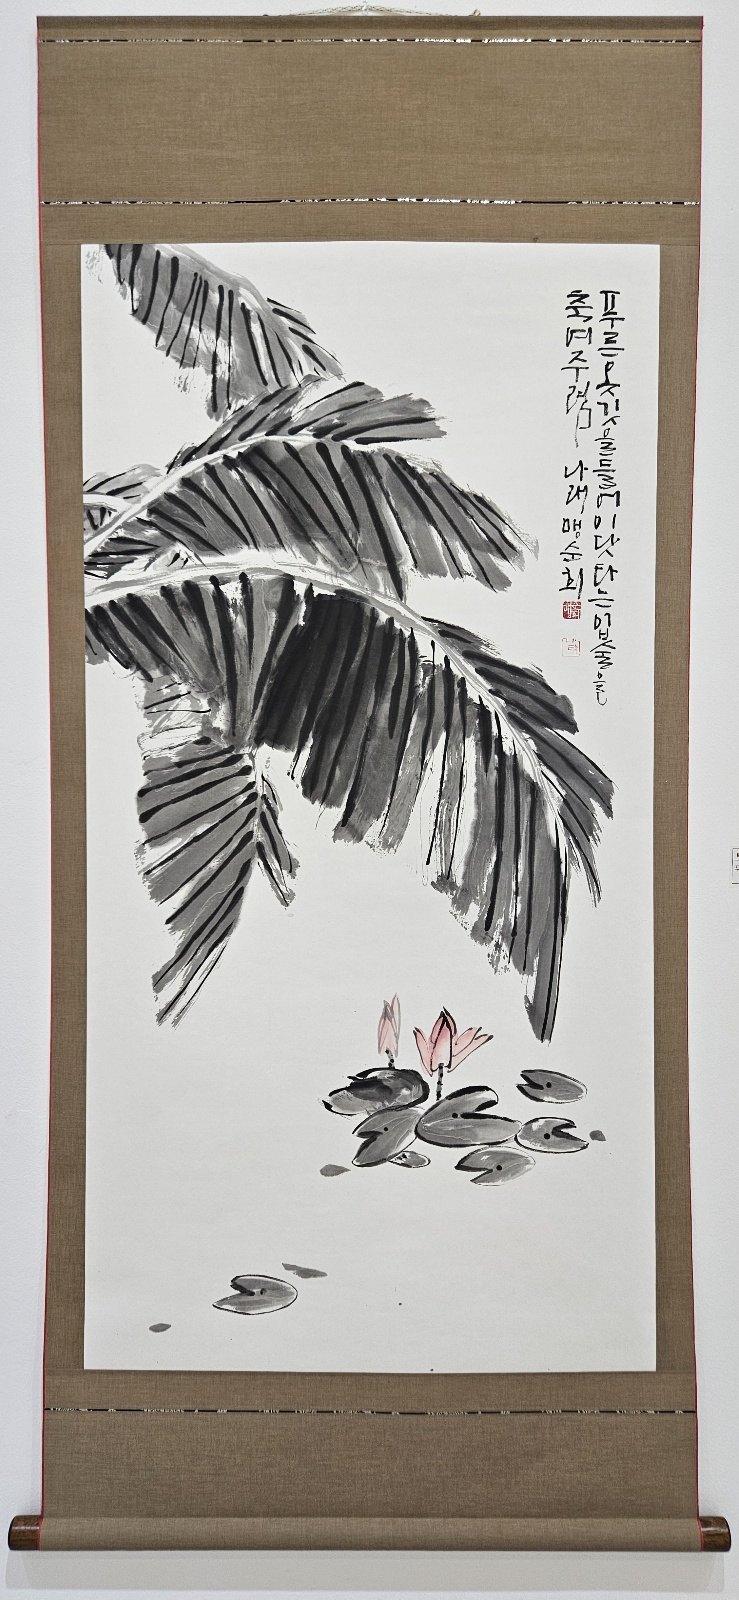 푸른 옷깃을 들어 이닷 타는 입술을
축여주렴 나래 맹순희